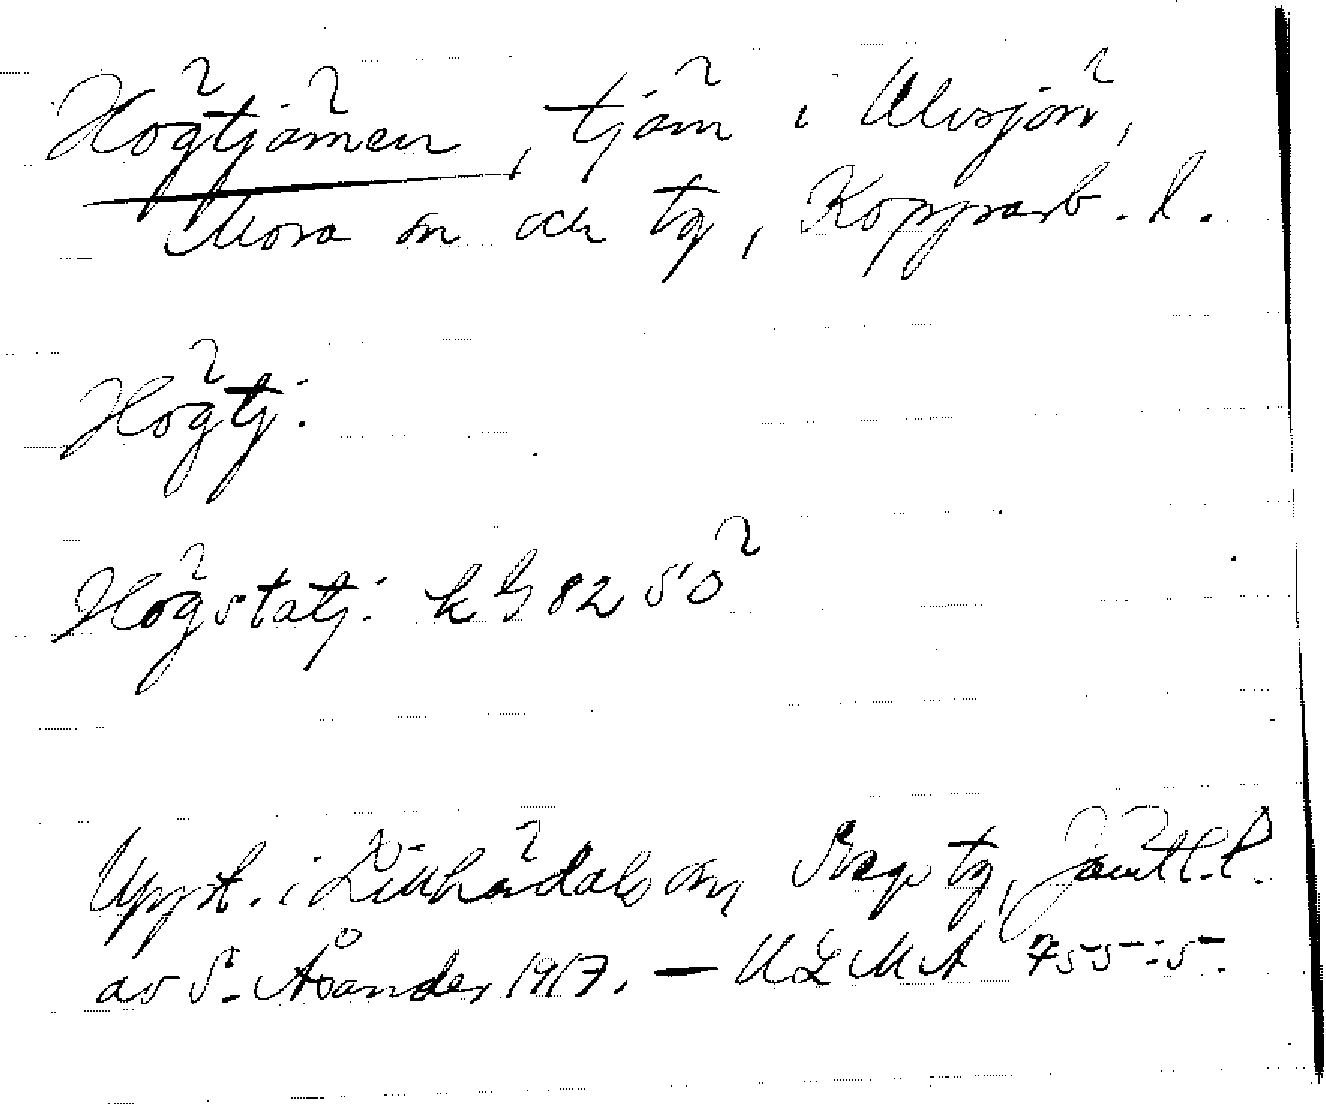 Högtjärnen, tjärn i Älvsjön,
Mora sn och tg, Kopparb. l.
Högtj:
Högstatj: kG 82 50
Uppt. i Lillhärdals sn, Svegs tg, Jämtl. l.
av S. Åsander 1917. — ULMA 755:5.